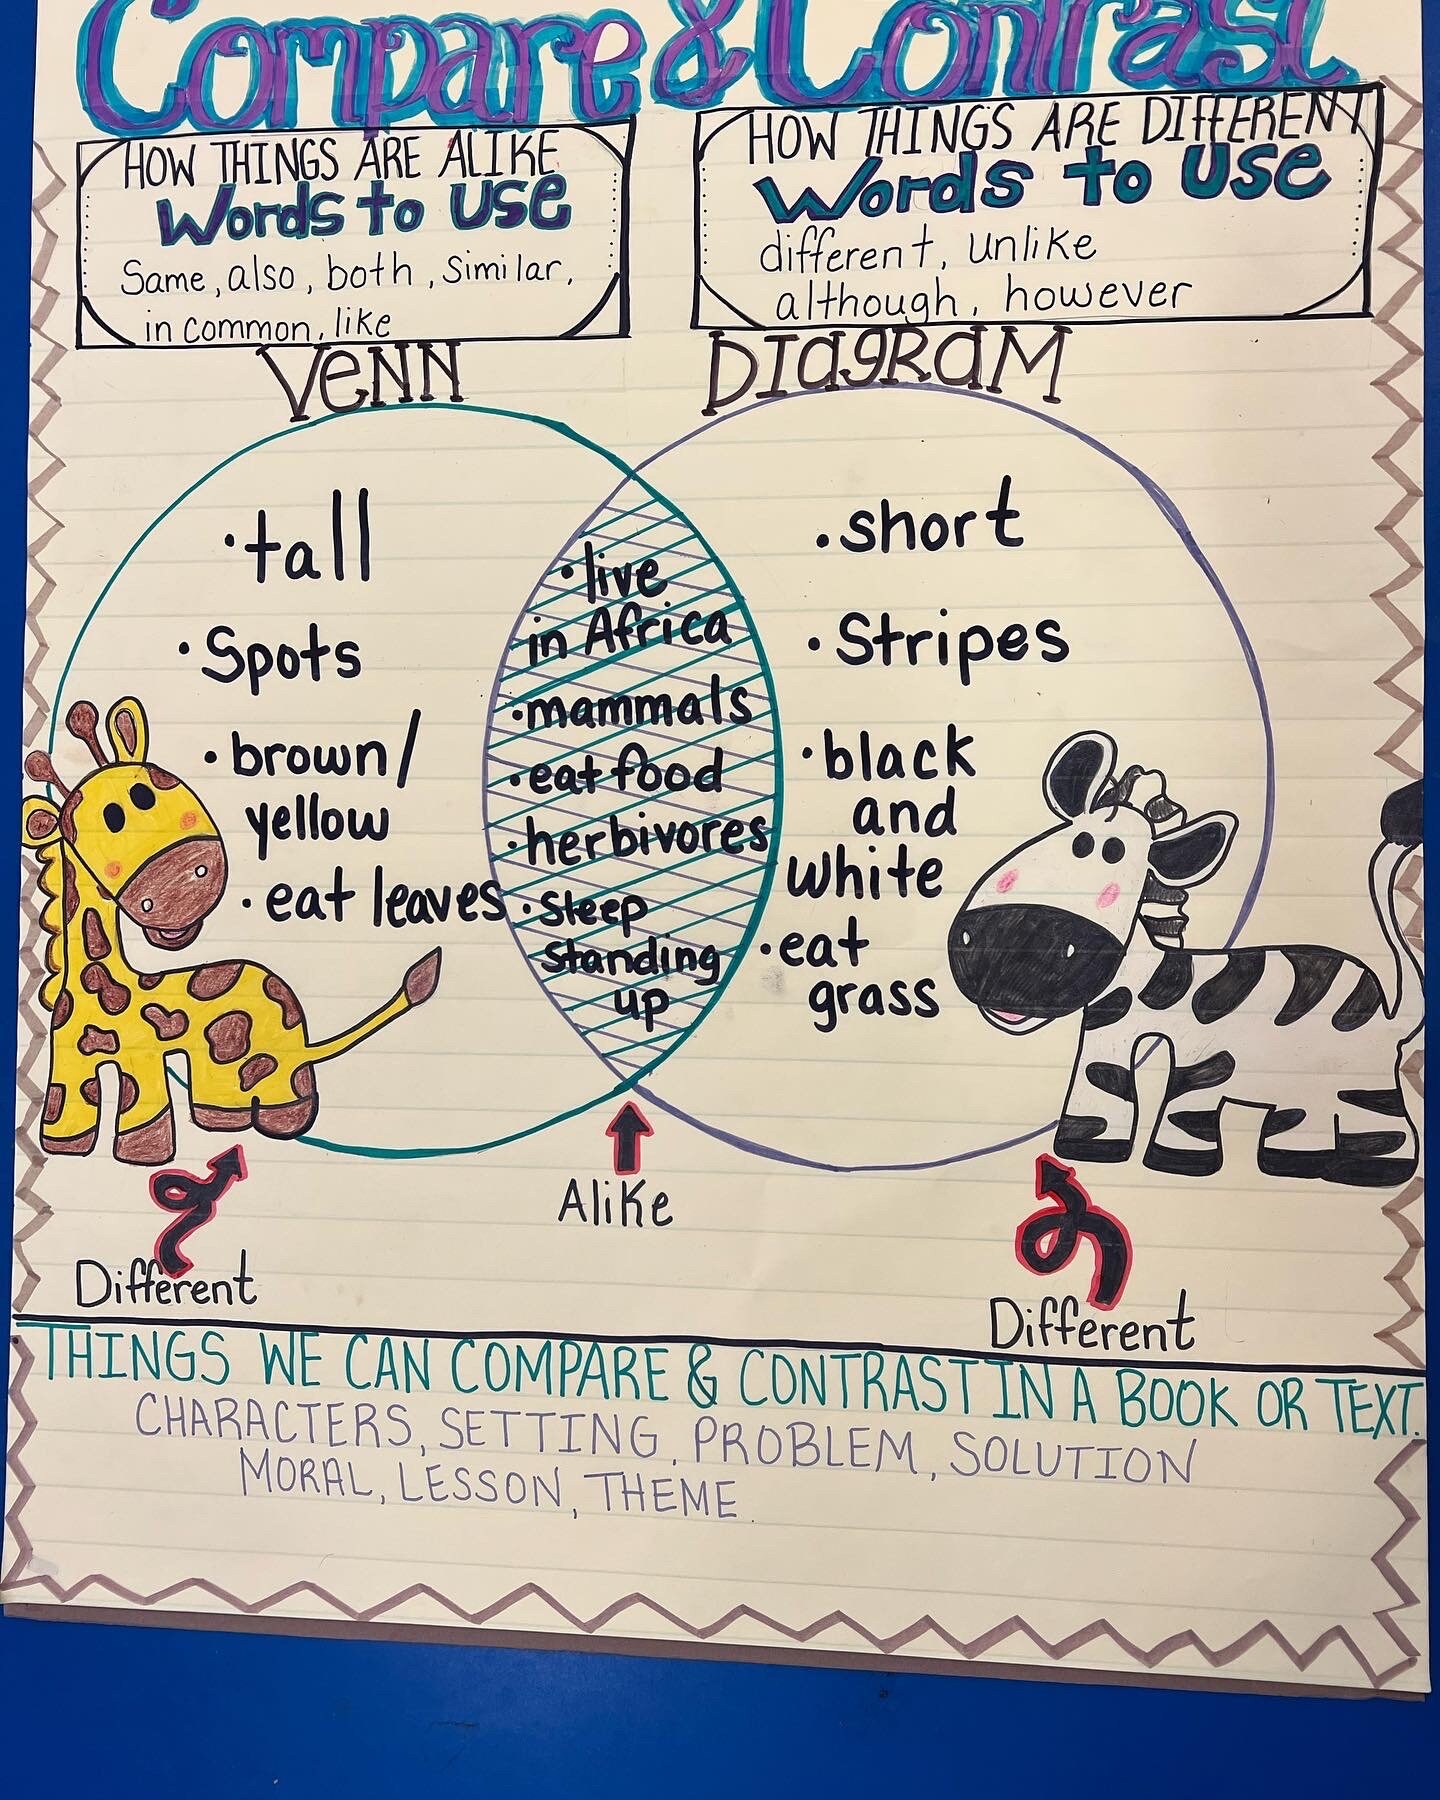 Compare & Contrast
HOW THINGS ARE ALIKE
Words to use
Same, also, both, similar,
in common, like
HOW THINGS ARE DIFFERENT
Words to use
different, unlike
although, however
VENN DIAGRAM
• tall
• Spots
• brown/
yellow
• eat leaves
• live
in Africa
• mammals
• eat food
• herbivores
• Sleep
standing
up
• short
• Stripes
• black
and
white
• eat
grass
Different
Alike
Different
THINGS WE CAN COMPARE & CONTRAST IN A BOOK OR TEXT.
CHARACTERS, SETTING, PROBLEM, SOLUTION
MORAL, LESSON, THEME.